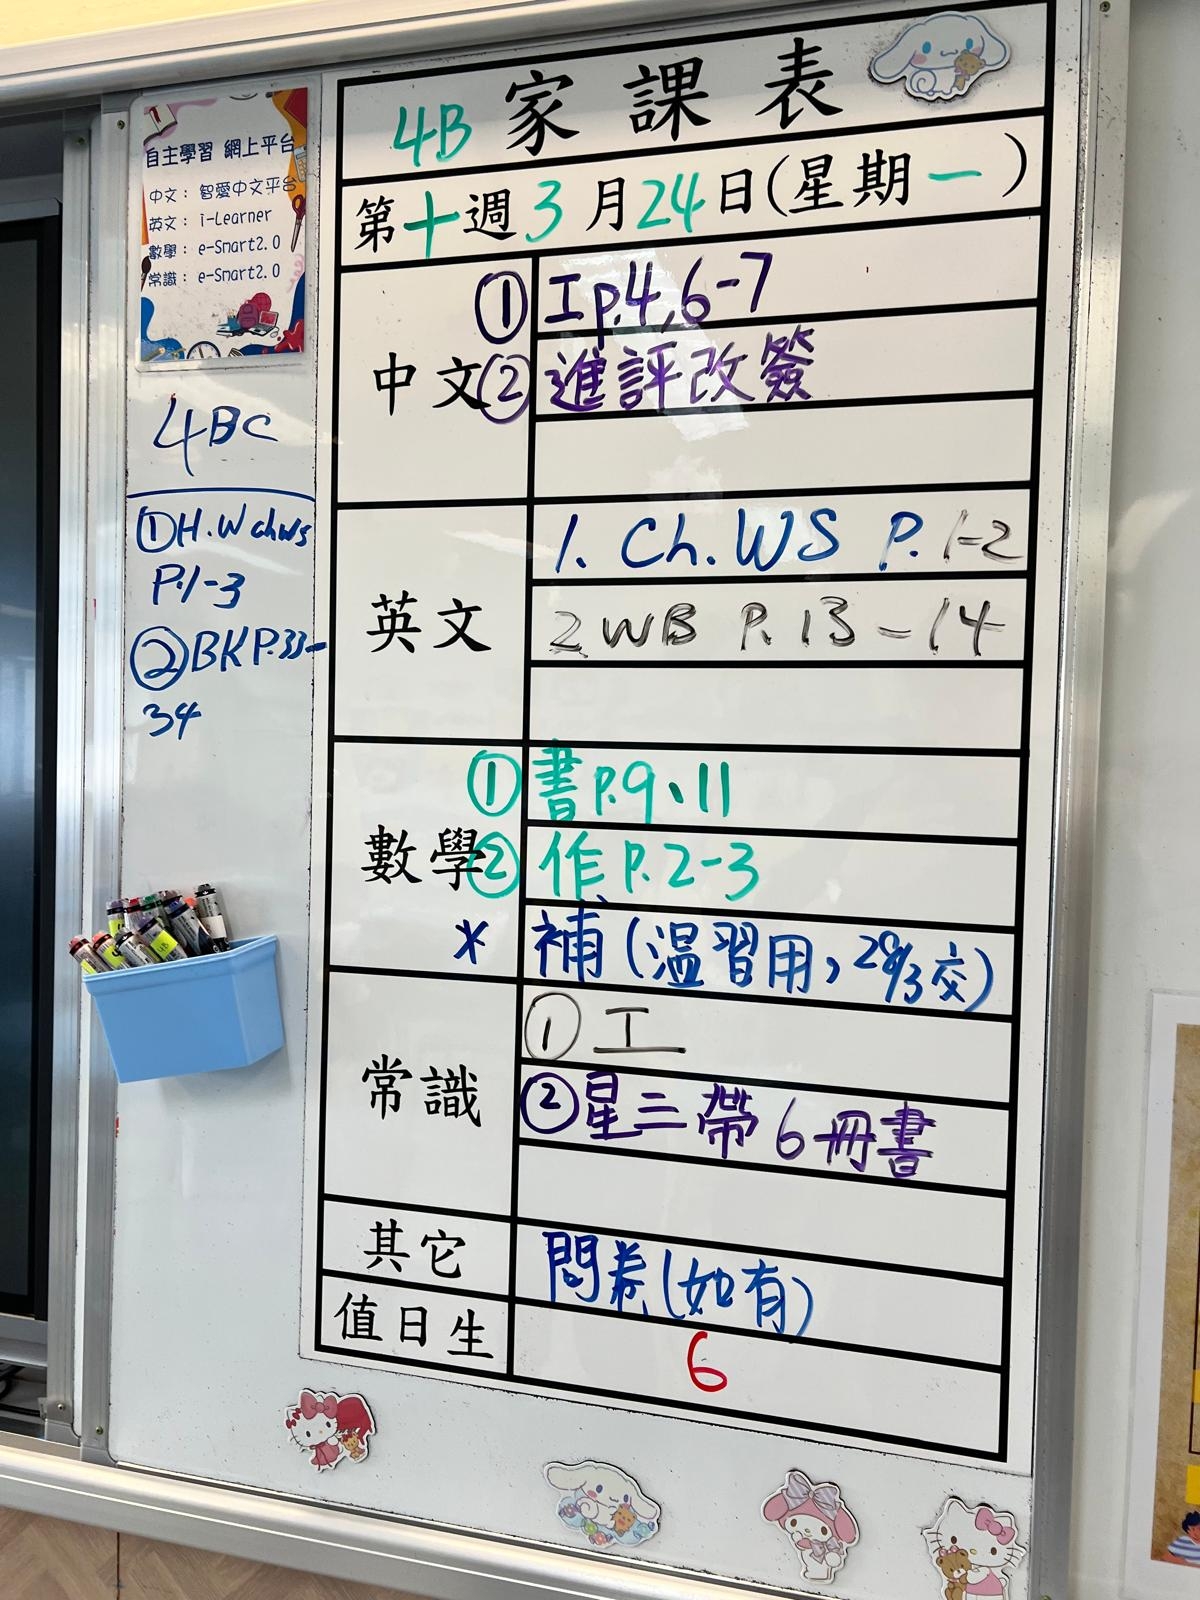 自主學習 網上平台
中文： 智愛中文平台
英文： i-Learner
數學： e-Smart2.0
常識： e-Smart2.0
4BC
①H.W ch.ws
P.1-3
②BK P.33-
34
4B 家課表
第十週3月24日(星期一)
中文
① 工p.4,6-7
② 進評改簽
英文
1. Ch.WS P. 1-2
2 WB P. 13-14
數學
① 書P.9、11
② 作P.2-3
* 補(温習用，28/3交)
常識
① 工
② 星三帶6冊書
其它
問卷(如有)
值日生
6